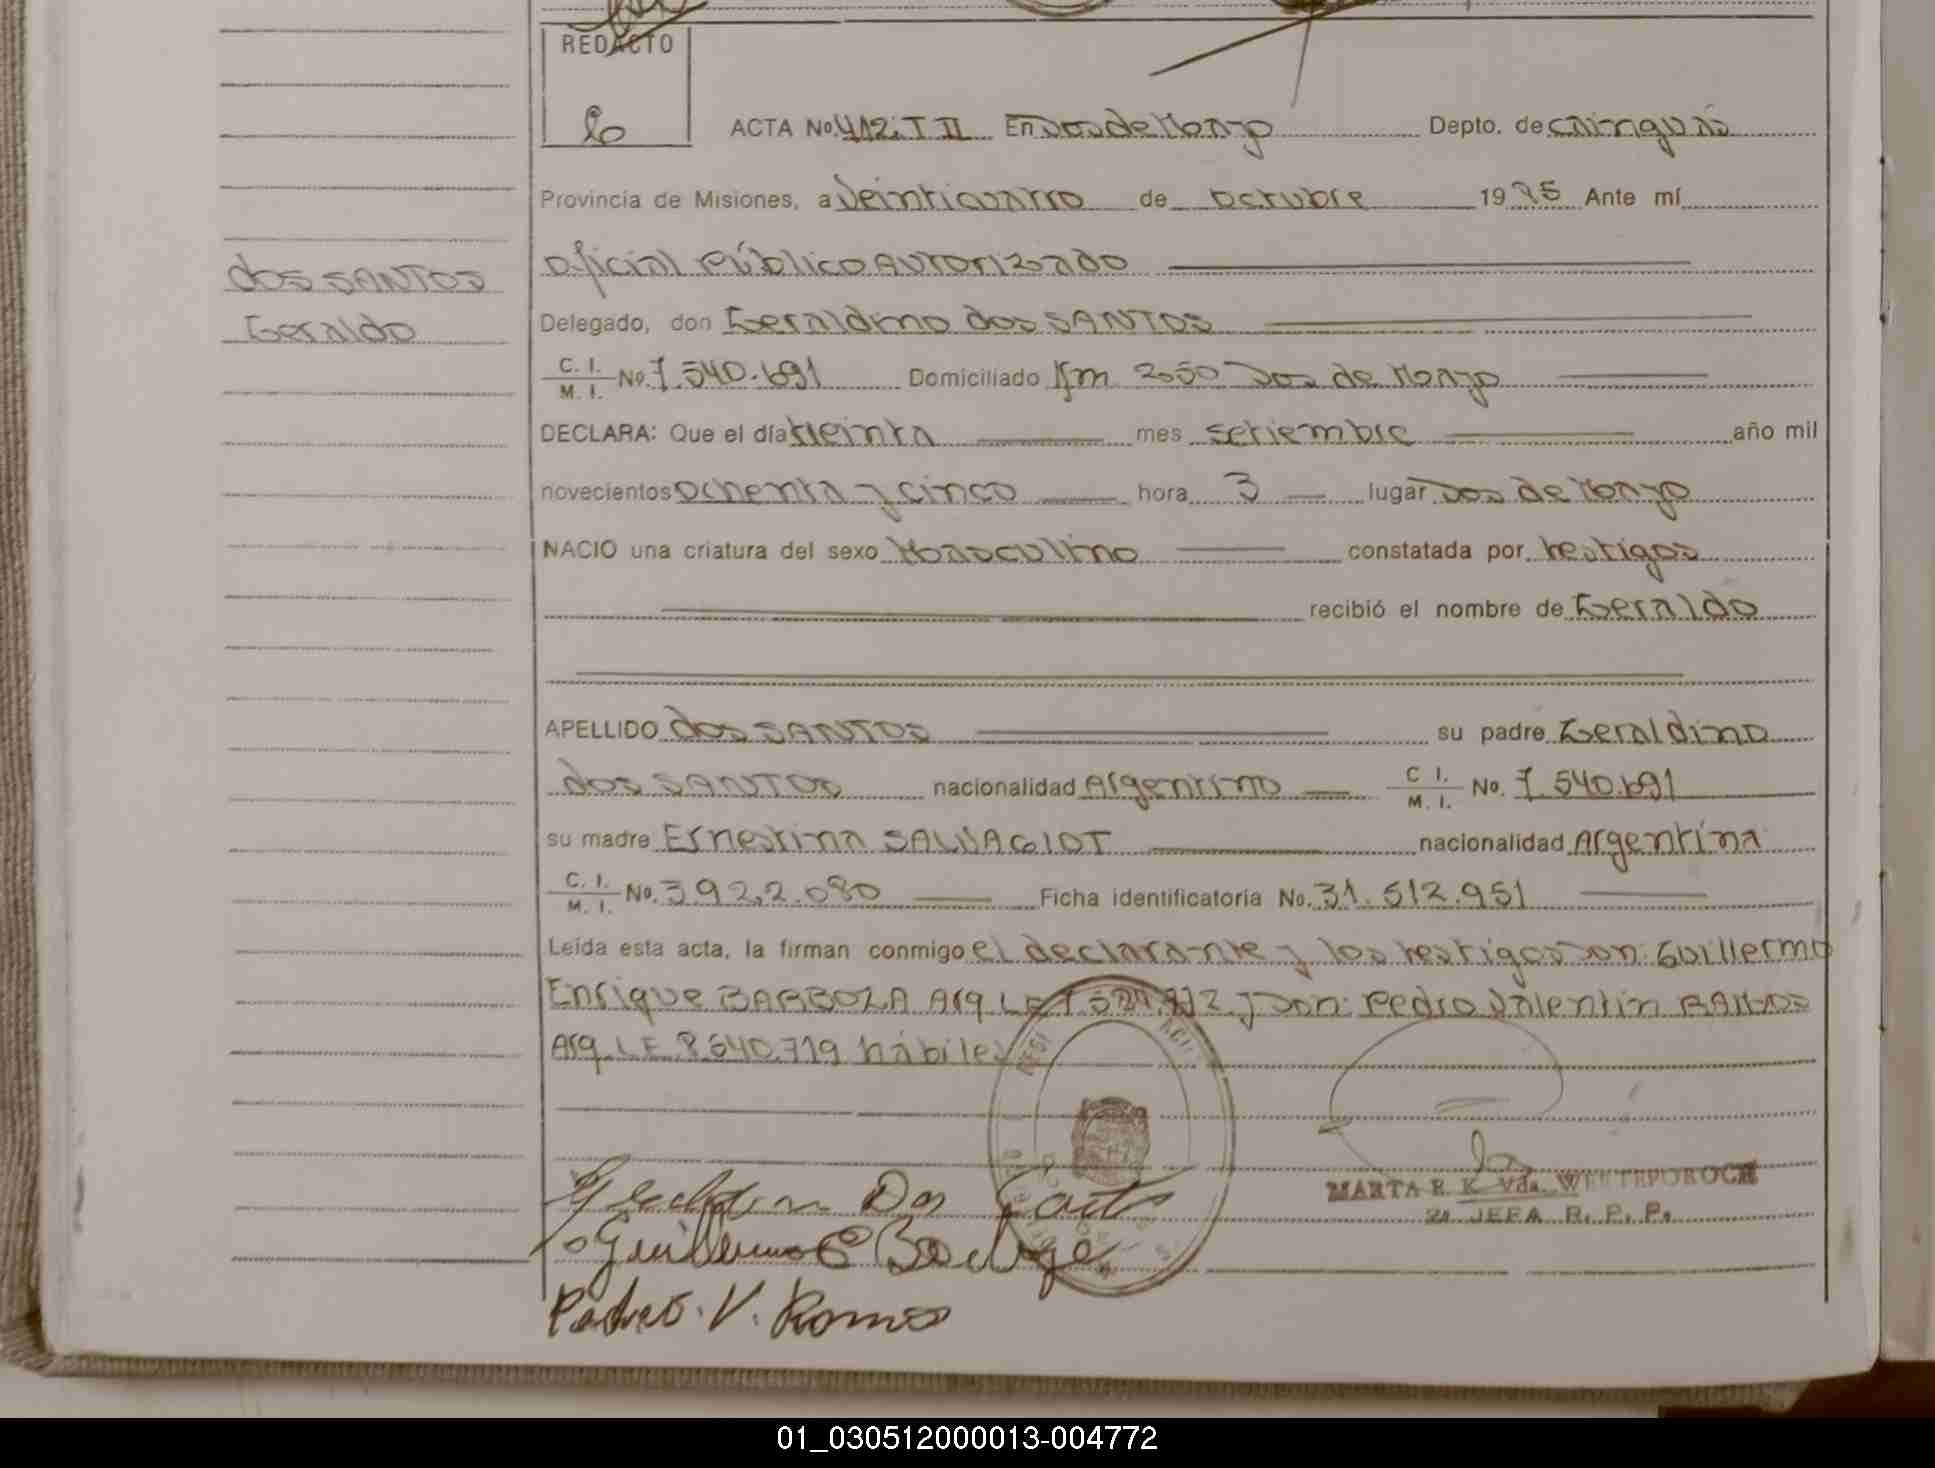 REDACTO
ACTA No. 412. T II En Dos de Mayo Depto. de Cainguás
Provincia de Misiones, a Veinticuatro de octubre 1985 Ante mí
oficial Público Autorizado
dos SANTOS
Delegado, don Geraldino dos SANTOS
Geraldo
C. I. M. I. No. 7.540.691 Domiciliado Km 250 Dos de Mayo
DECLARA: Que el día treinta mes setiembre año mil
novecientos ochenta y cinco hora 3 lugar Dos de Mayo
NACIO una criatura del sexo Masculino constatada por testigos
recibió el nombre de Geraldo
APELLIDO dos SANTOS su padre Geraldino
dos SANTOS nacionalidad Argentino C I. M. I. No. 7.540.691
su madre Ernestina nacionalidad Argentina
C. I. M. I. No. 3.922.080 Ficha identificatoria No. 31.512.951
Leída esta acta, la firman conmigo el declarante y los testigos Don: Guillermo
Enrique BARBOZA Arg. LE y Don: Pedro Valentín RAMOS
Arg. LE 8.640.719 hábiles
MARTA R. K. Vda.
2a JEFA R. P. P.
Guillermo E
Pedro. V. Ramos
01_030512000013-004772